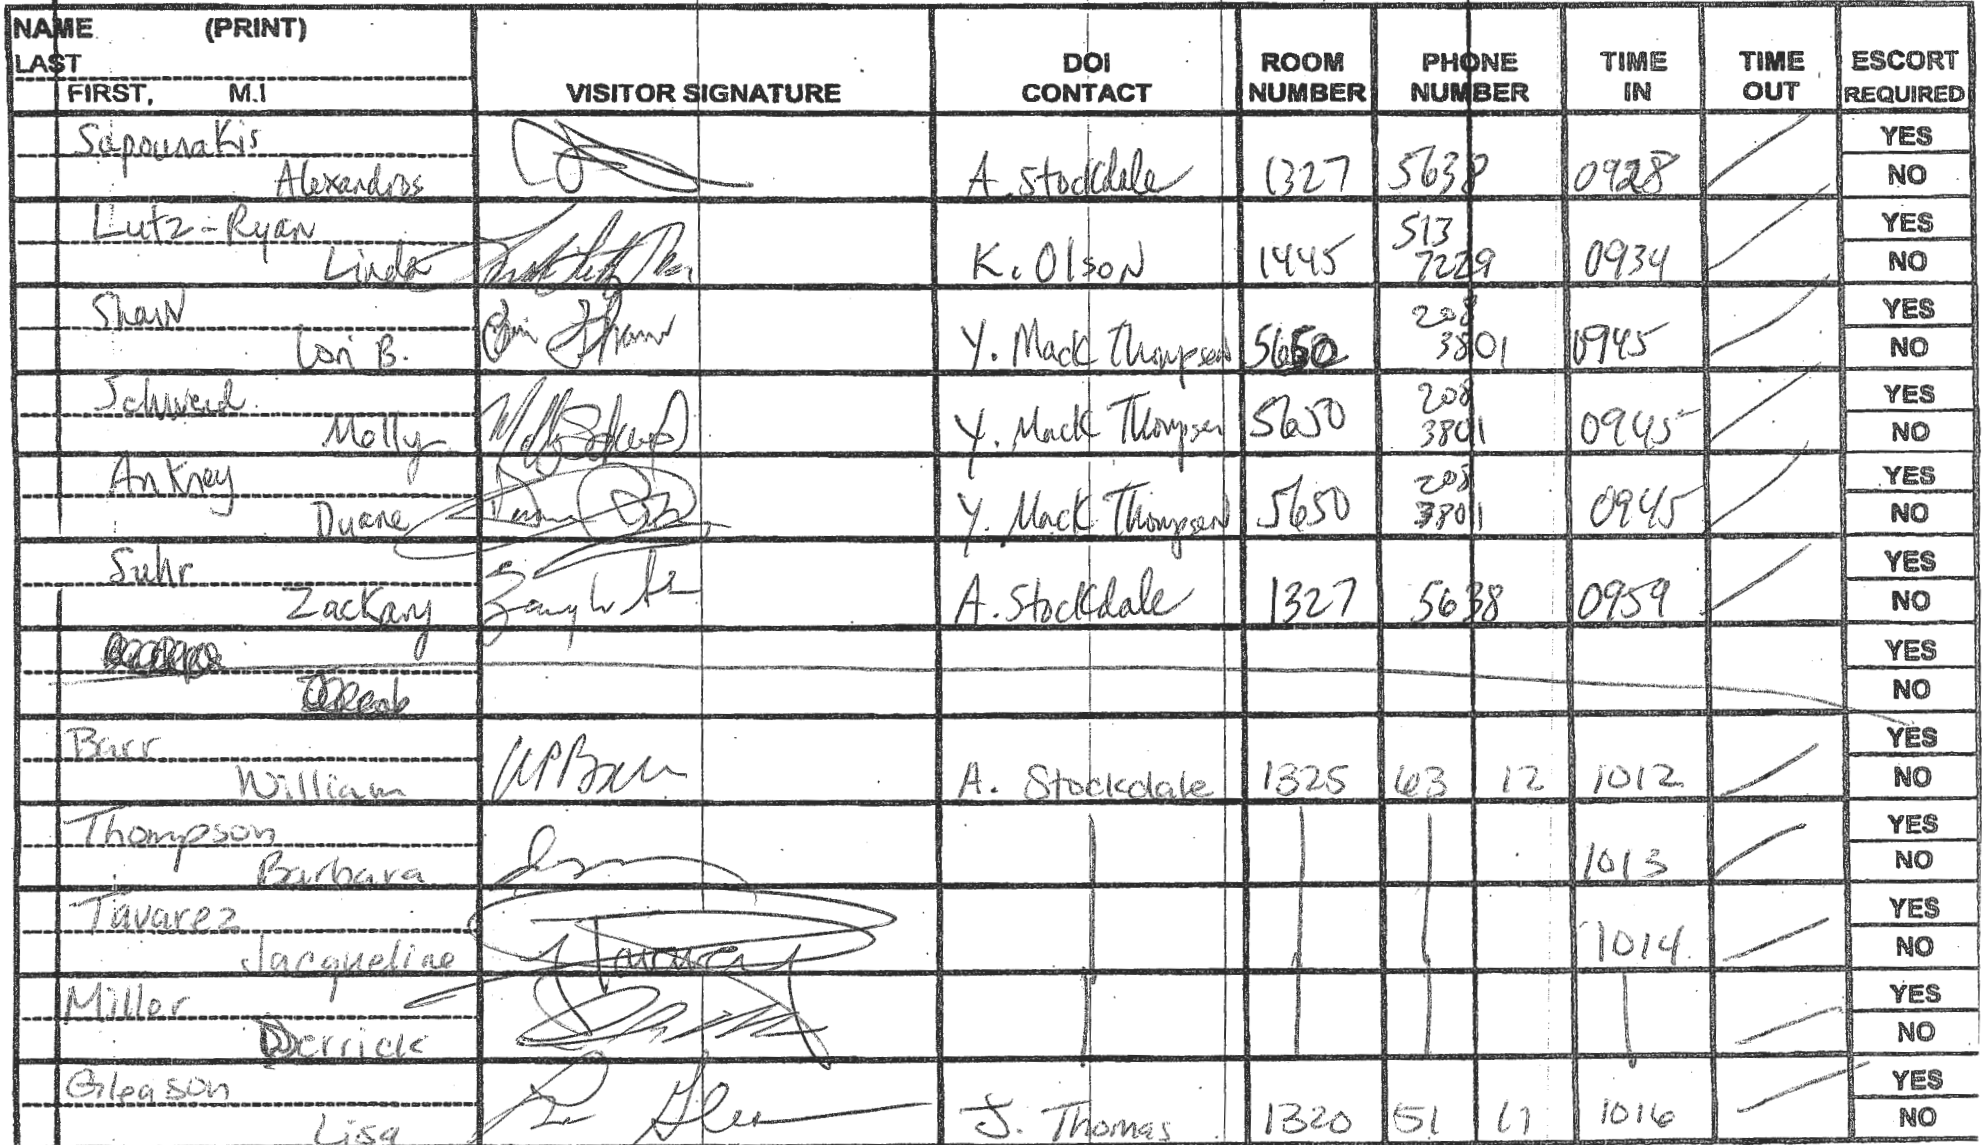 NAME (PRINT)
LAST
FIRST, M.I
VISITOR SIGNATURE
DOI CONTACT
ROOM NUMBER
PHONE NUMBER
TIME IN
TIME OUT
ESCORT REQUIRED
Sapounakis YES
Alexandros A. Stockdale 1327 5638 0928 NO
Lutz-Ryan 513 YES
Linda K. Olson 1445 7229 0934 NO
Shaw 208 YES
Lori B. Y. Mack Thompson 5650 3801 0945 NO
Schweid 208 YES
Molly Y. Mack Thompson 5650 3801 0945 NO
Ankney 208 YES
Duane Y. Mack Thompson 5650 3801 0945 NO
Suhr YES
Zackary A. Stockdale 1327 5638 0959 NO
YES
NO
Barr YES
William A. Stockdale 1325 63 12 1012 NO
Thompson YES
Barbara 1013 NO
Tavarez YES
Jacqueline 1014 NO
Miller YES
Derrick NO
Gleason YES
Lisa J. Thomas 1320 51 1016 NO